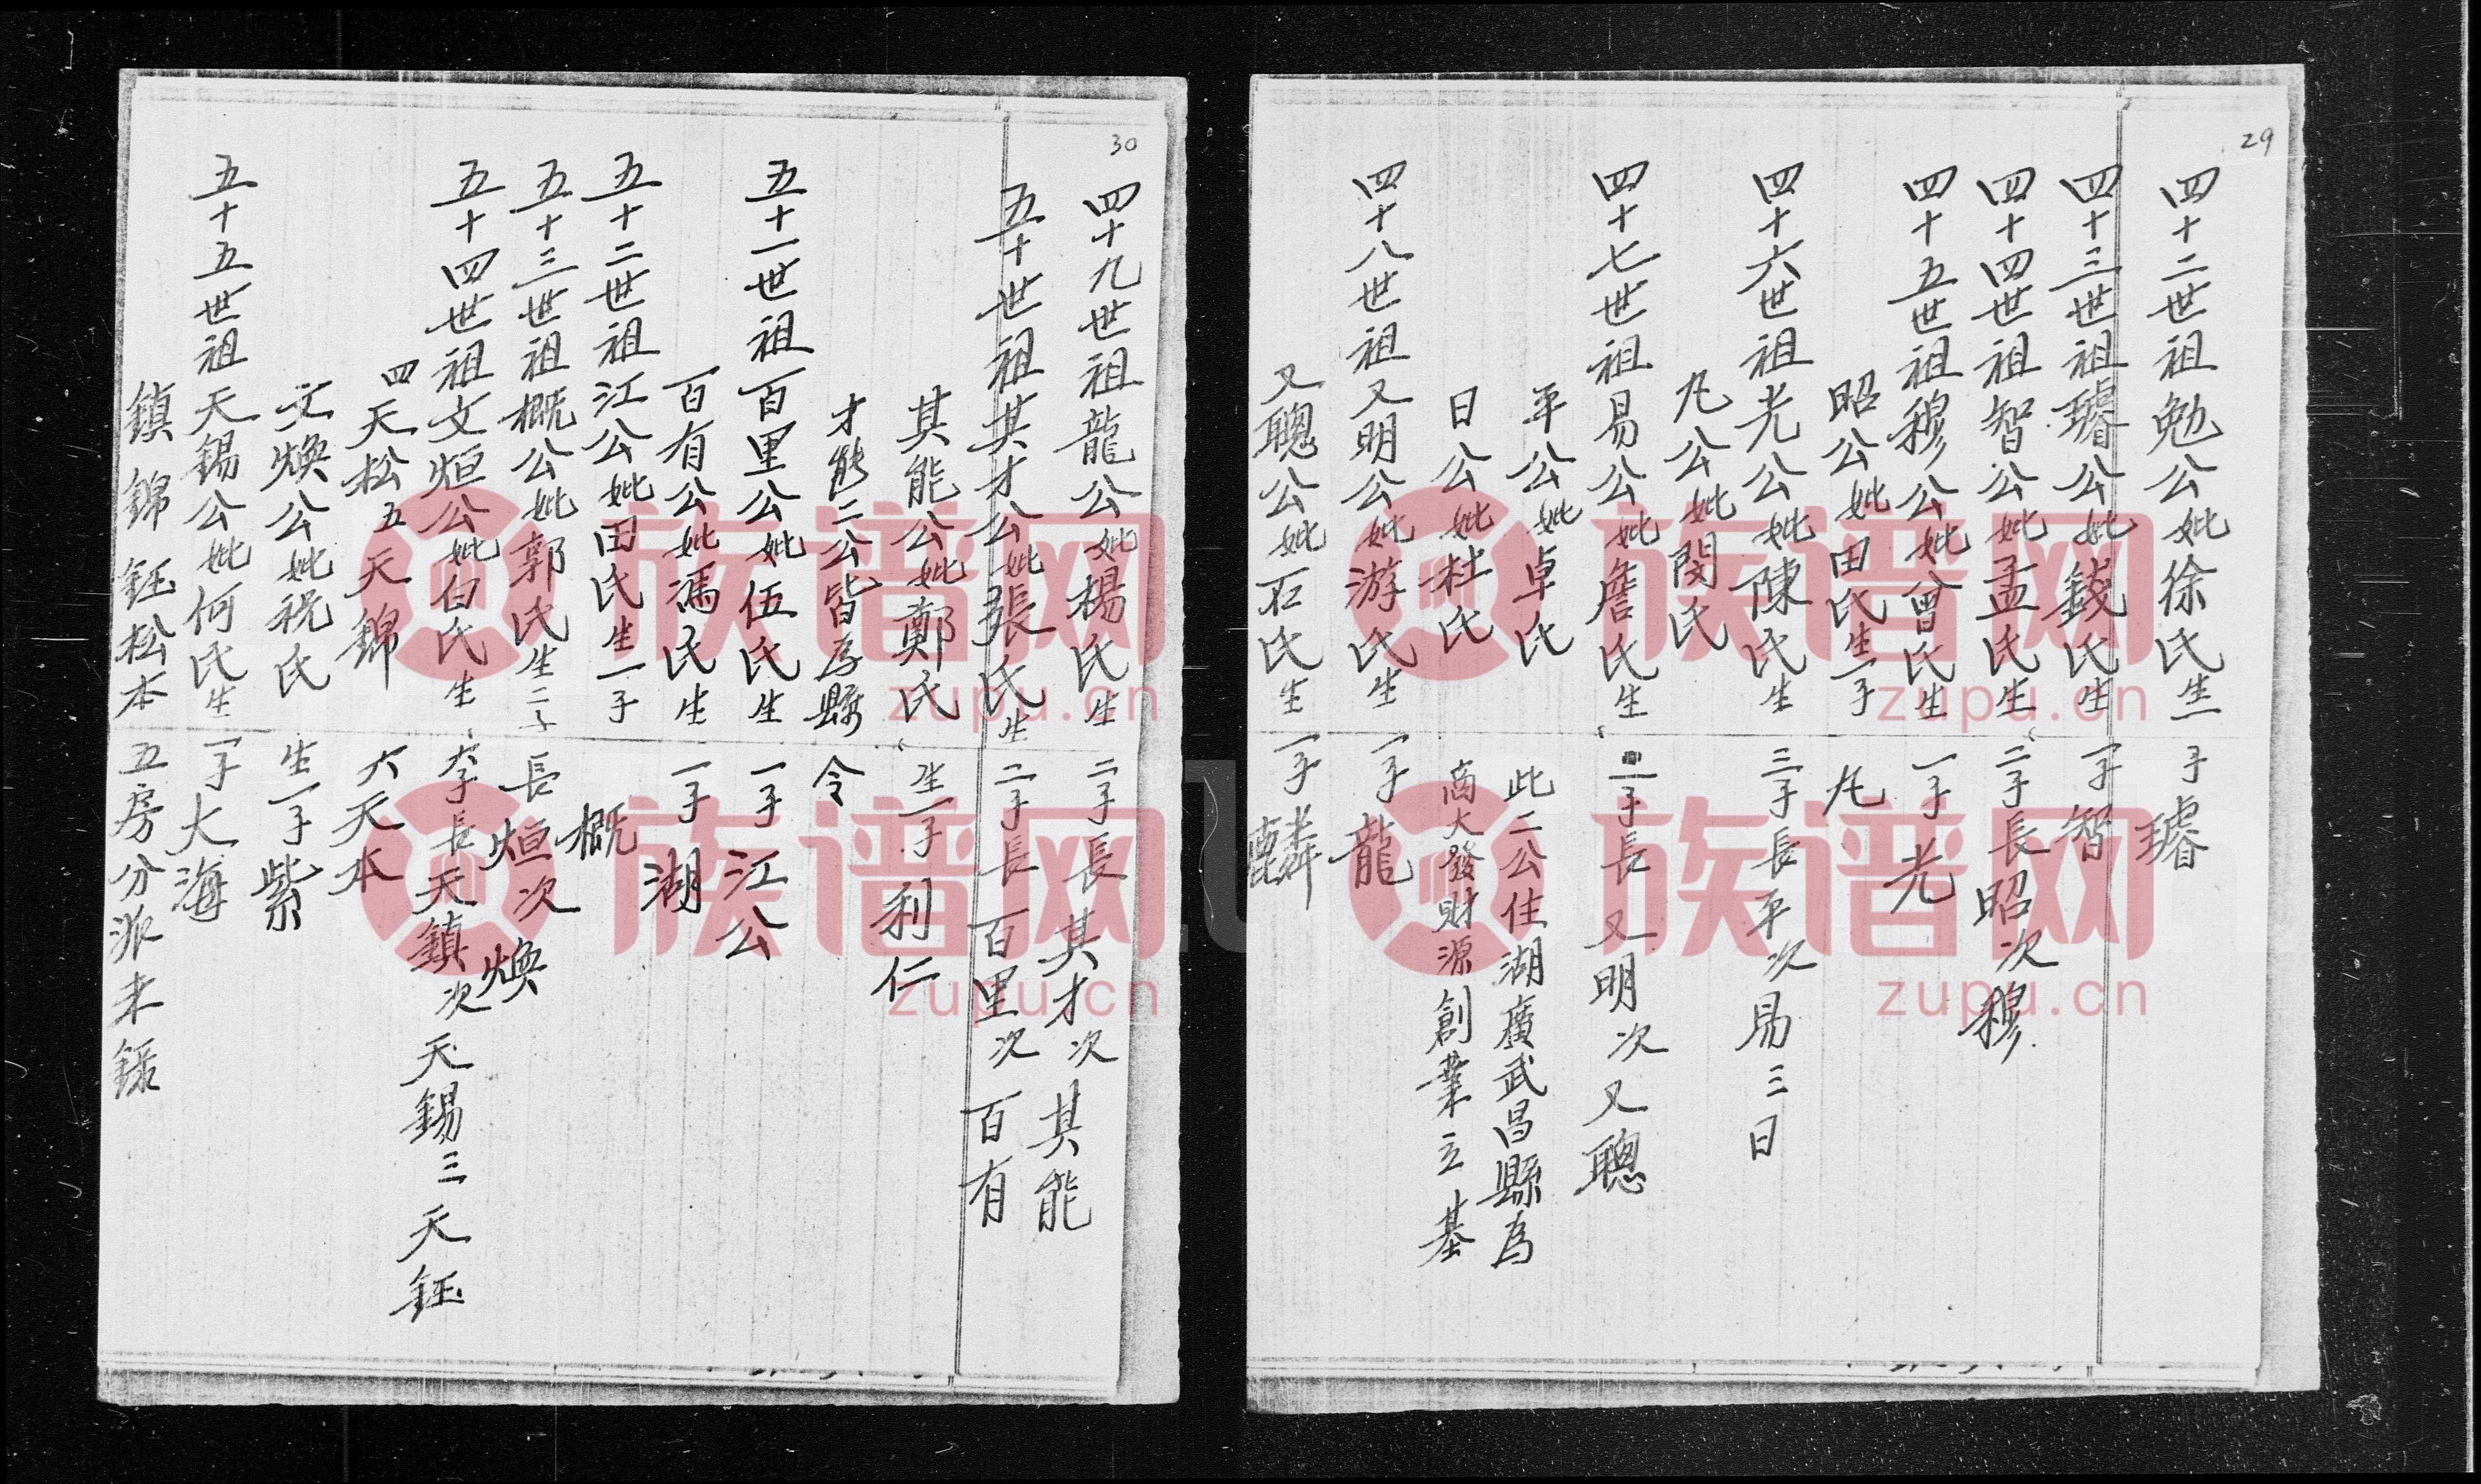 29
四十二世祖勉公妣徐氏生一子璿
四十三世祖璿公妣錢氏生一子智
四十四世祖智公妣孟氏生二子長昭次穆
四十五世祖穆公妣曾氏生一子光
昭公妣田氏生一子九
四十六世祖光公妣陳氏生三子長平次易三日
九公妣閔氏
四十七世祖易公妣詹氏生二子長又明次又聰
平公妣卓氏 此二公住湖廣武昌縣為
日公妣杜氏 商大發財源創業立基
四十八世祖又明公妣游氏生一子龍
又聰公妣石氏生一子麟
30
四十九世祖龍公妣楊氏生二子長其才次其能
五十世祖其才公妣張氏生二子長百里次百有
其能公妣鄭氏生一子利仁
才能二公皆為縣令
五十一世祖百里公妣伍氏生一子江公
百有公妣馮氏生一子湖
五十二世祖江公妣田氏生一子概
五十三世祖概公妣郭氏生二子長烜次煥
五十四世祖文烜公妣白氏生六子長天鎮次天錫三天鈺
四天松五天錦六天本
文煥公妣祝氏生一子紫
五十五世祖天錫公妣何氏生一子大海
鎮錦鈺松本五房分派未錄
族谱网
zupu.cn
族谱网
zupu.cn
族谱网
zupu.cn
族谱网
zupu.cn